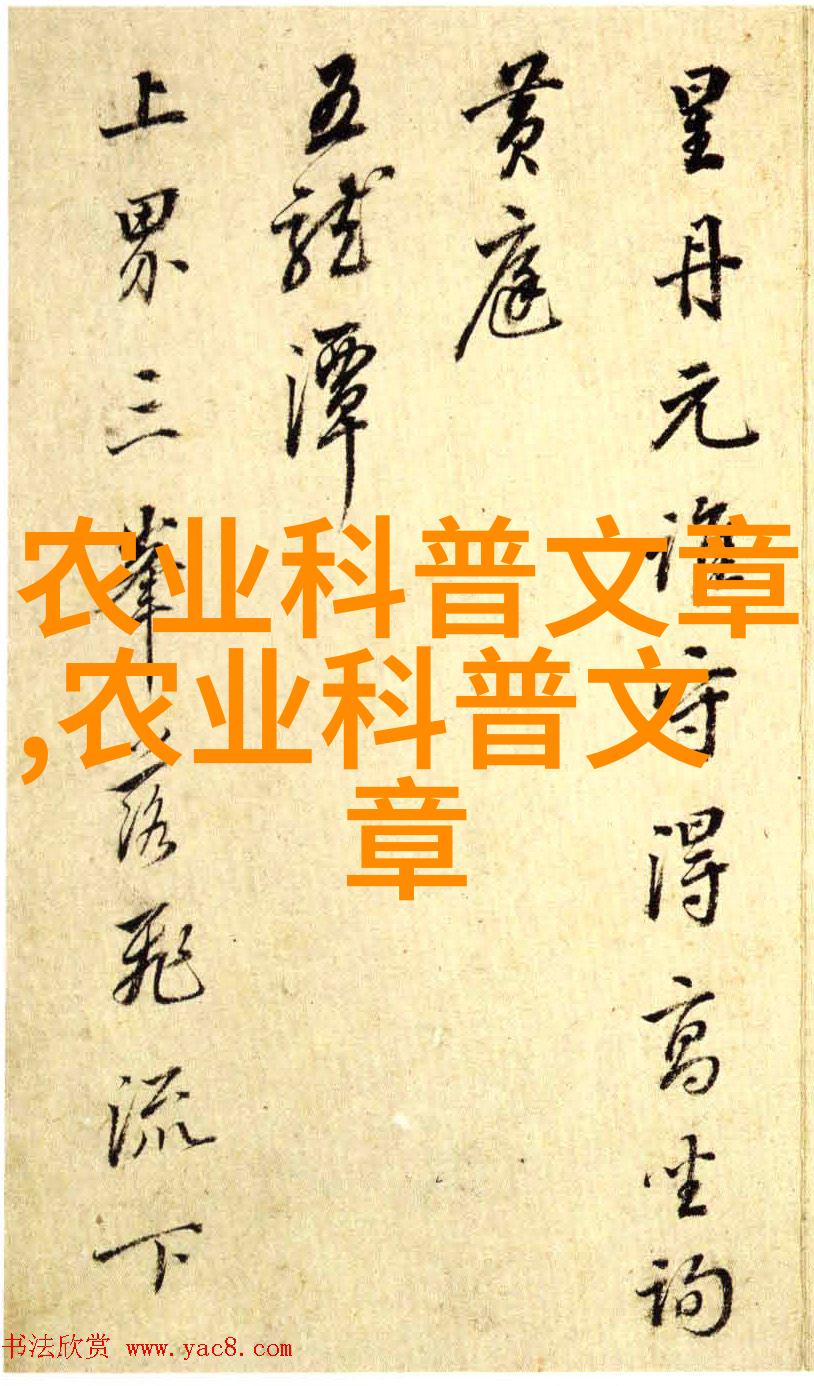 星丹元谁守得高坐询
黄庭
五龙潭
上界三峯落飛流下
农业科普文章
,农业科普文
章
书法欣赏 www.yac8.com